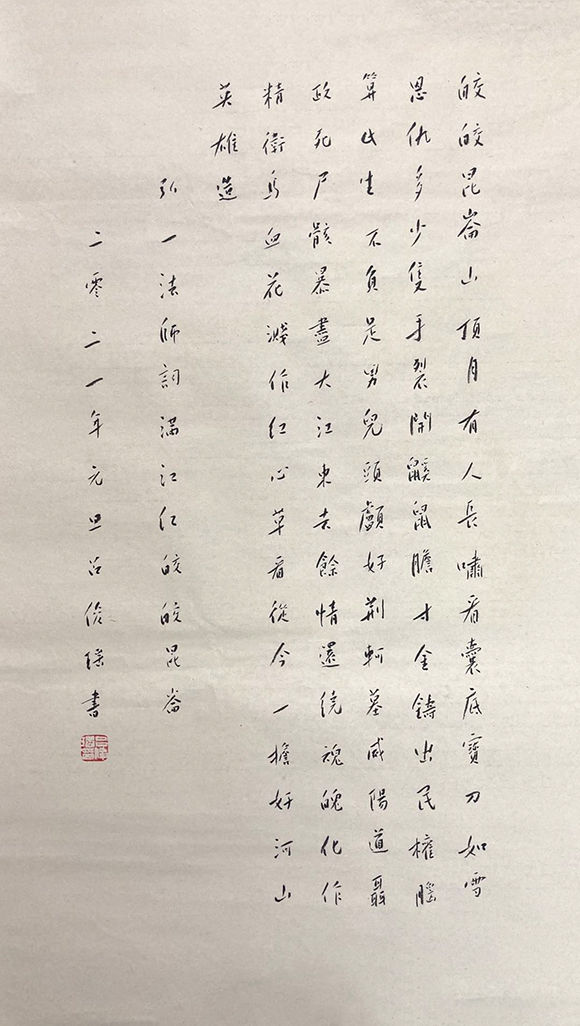 皎皎昆崙山頂月有人長嘯看囊底寶刀如雪
恩仇多少隻手裂開鼷鼠膽寸金鑄出民權腦
算此生不負是男兒頭顱好荆軻墓咸陽道聶
政死尸骸暴盡大江東去餘情還繞魂魄化作
精衛鳥血花濺作红心草看從今一擔好河山
英雄造
弘一法师詞滿江红皎皎昆崙
二零二一年元旦吕俊璞書